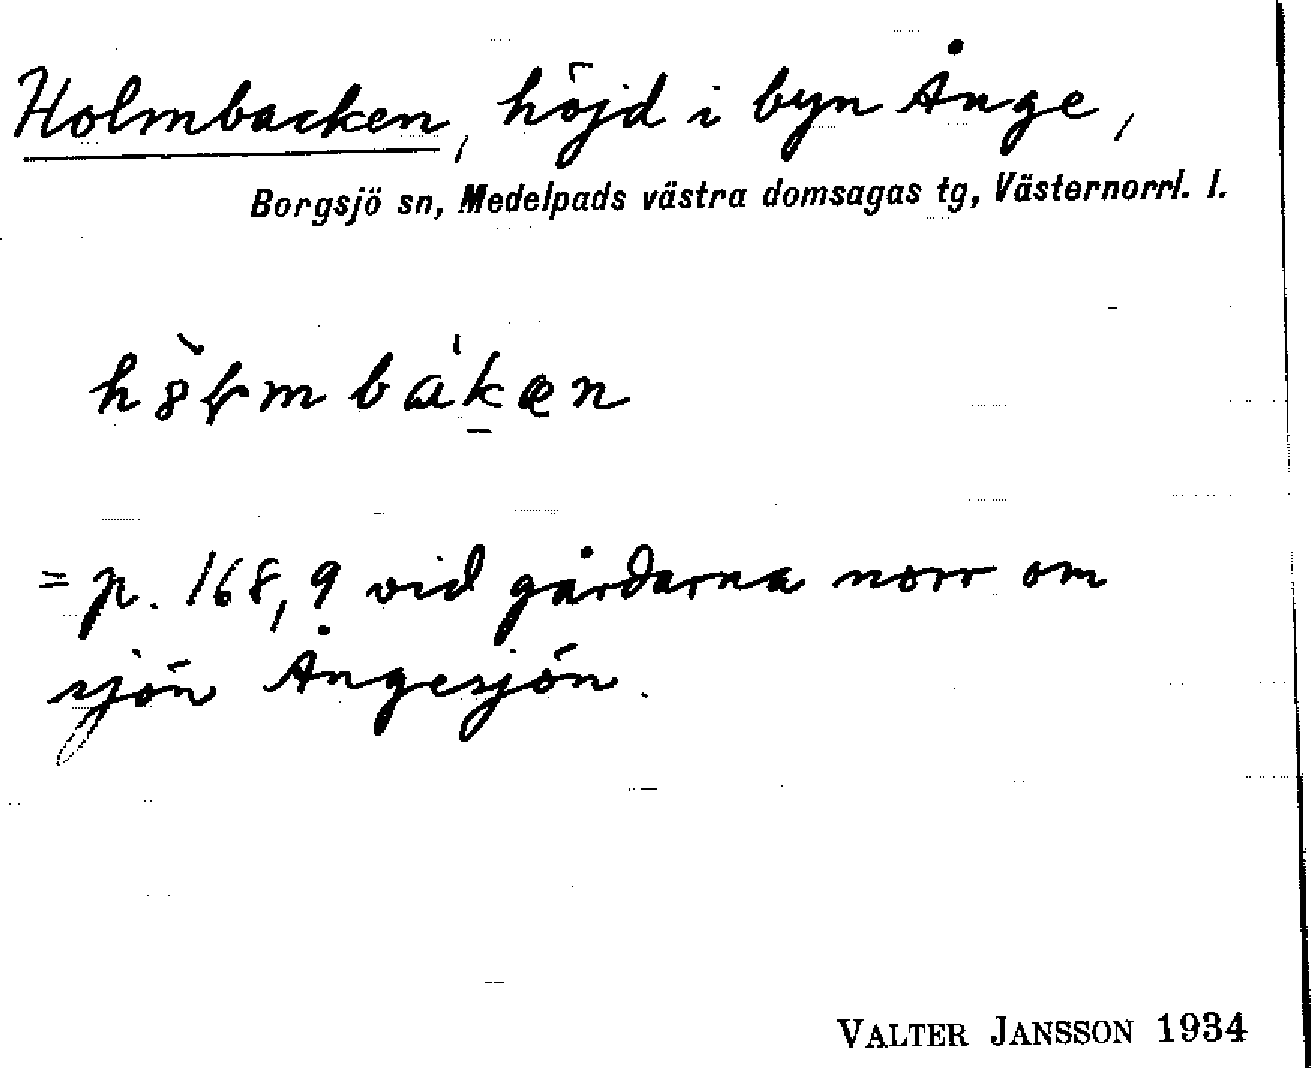 Holmbacken, höjd i byn Ånge,
Borgsjö sn, Medelpads västra domsagas tg, Västernorrl. l.
= p. 168,9 vid gårdarna norr om
sjön Ångesjön.
VALTER JANSSON 1934